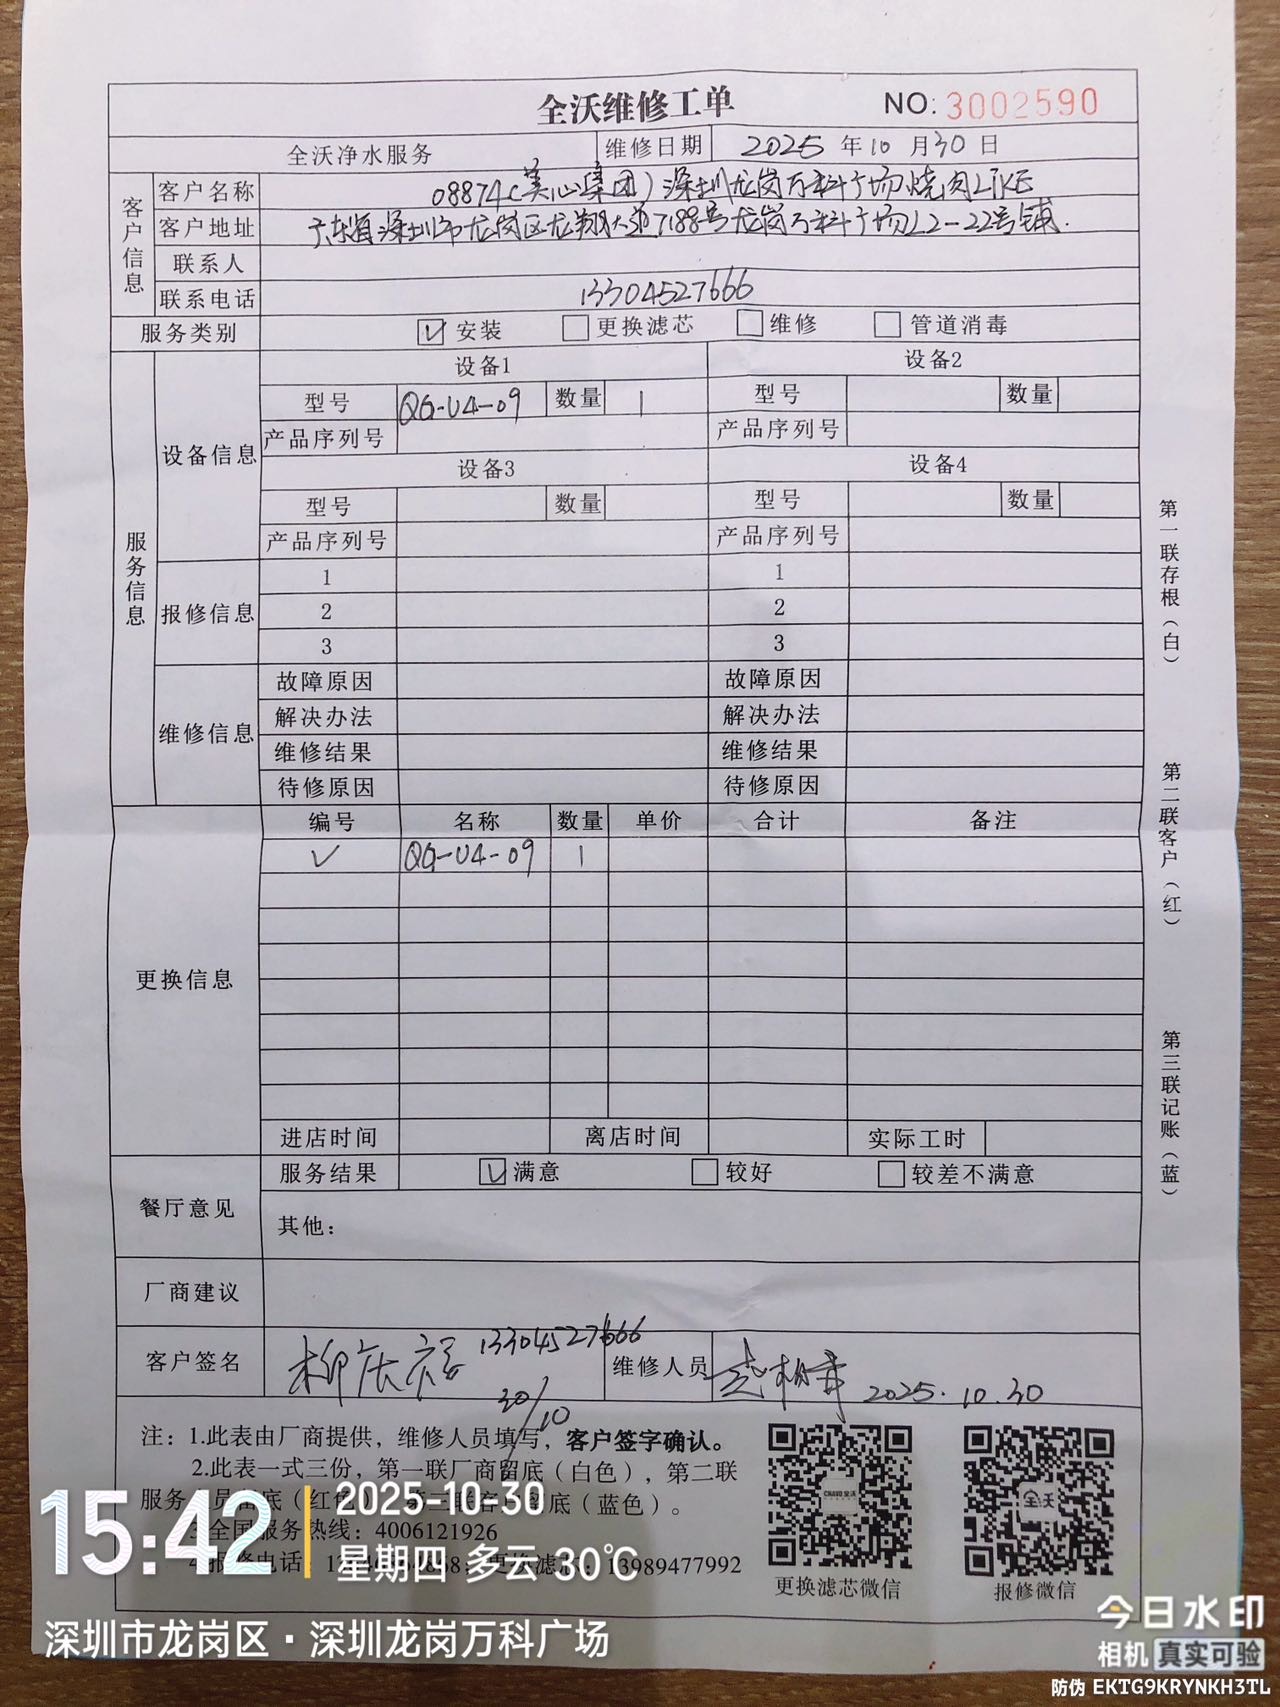 全沃维修工单 NO: 3002590
全沃净水服务 维修日期 2025 年 10 月 30 日
客户信息
客户名称 08874(美心集团)深圳龙岗万科广场烧肉LIKE
客户地址 广东省深圳市龙岗区龙翔大道7188号龙岗万科广场L2-22号铺.
联系人
联系电话 13304527666
服务类别 ☑ 安装 □ 更换滤芯 □ 维修 □ 管道消毒
服务信息
设备信息
设备1 设备2
型号 QG-U4-09 数量 1 型号 数量
产品序列号 产品序列号
设备3 设备4
型号 数量 型号 数量
产品序列号 产品序列号
报修信息
1 1
2 2
3 3
维修信息
故障原因 故障原因
解决办法 解决办法
维修结果 维修结果
待修原因 待修原因
更换信息
编号 名称 数量 单价 合计 备注
✓ QG-U4-09 1
进店时间 离店时间 实际工时
餐厅意见
服务结果 ☑ 满意 □ 较好 □ 较差不满意
其他:
厂商建议
客户签名 13304527666 维修人员 2025.10.30
30/10
注: 1.此表由厂商提供，维修人员填写，客户签字确认。
2.此表一式三份，第一联厂商留底（白色），第二联
服务 底（红色） 底（蓝色）。
全国服务热线: 4006121926
报修电话: 13989477992
更换滤芯微信 报修微信
第一联存根（白）
第二联客户（红）
第三联记账（蓝）
CHAVO 全沃
全沃
15:42
2025-10-30
星期四 多云 30℃
深圳市龙岗区·深圳龙岗万科广场
今日水印
相机 真实可验
防伪 EKTG9KRYNKH3TL